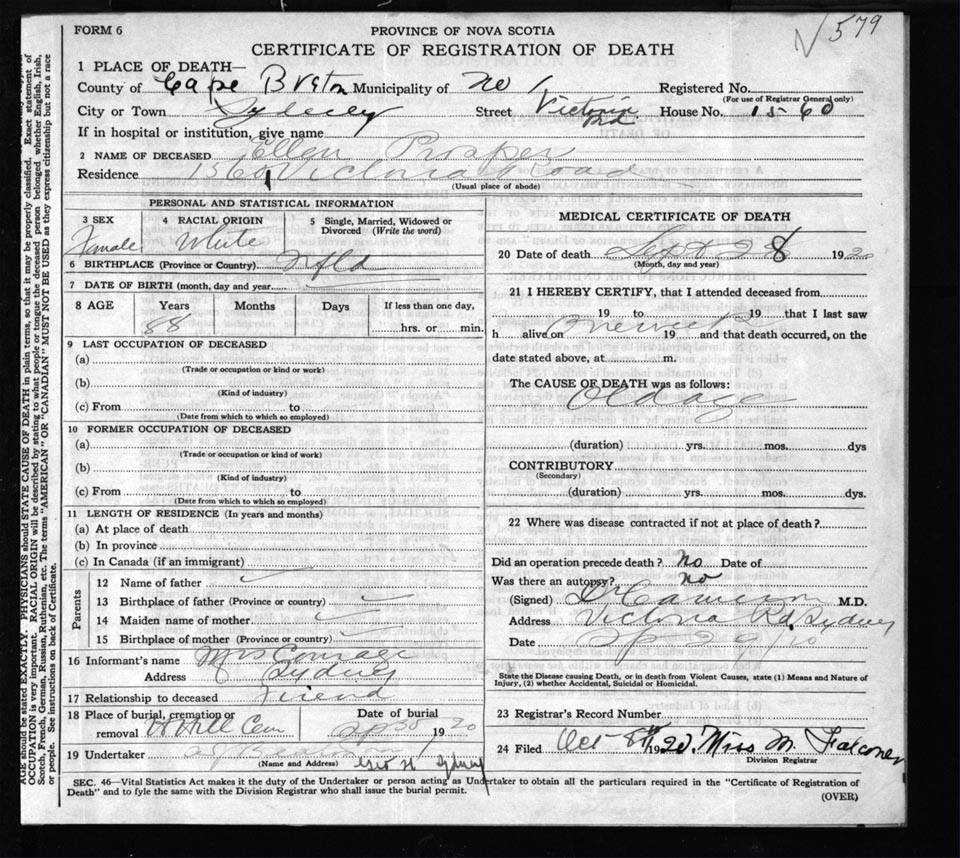 FORM 6
PROVINCE OF NOVA SCOTIA
579
CERTIFICATE OF REGISTRATION OF DEATH
1 PLACE OF DEATH—
County of Cape Breton Municipality of No 1 Registered No.
(For use of Registrar General only)
City or Town Sydney Street Victoria Rd. House No. 1560
If in hospital or institution, give name
2 NAME OF DECEASED Ellen Prosper
Residence 1560 Victoria Road
(Usual place of abode)
PERSONAL AND STATISTICAL INFORMATION
3 SEX 4 RACIAL ORIGIN 5 Single, Married, Widowed or Divorced (Write the word)
Female White
6 BIRTHPLACE (Province or Country) Nfld
7 DATE OF BIRTH (month, day and year)
8 AGE Years Months Days If less than one day,
88 hrs. or min.
9 LAST OCCUPATION OF DECEASED
(a)
(Trade or occupation or kind or work)
(b)
(Kind of industry)
(c) From to
(Date from which to which so employed)
10 FORMER OCCUPATION OF DECEASED
(a)
(Trade or occupation or kind of work)
(b)
(Kind of industry)
(c) From to
(Date from which to which so employed)
11 LENGTH OF RESIDENCE (In years and months)
(a) At place of death
(b) In province
(c) In Canada (if an immigrant)
Parents
12 Name of father
13 Birthplace of father (Province or country)
14 Maiden name of mother
15 Birthplace of mother (Province or country)
16 Informant's name Mrs
Address Sydney
17 Relationship to deceased Friend
18 Place of burial, cremation or removal Date of burial
Hill Cem Sep 30 1920
19 Undertaker
(Name and Address) Sydney
MEDICAL CERTIFICATE OF DEATH
20 Date of death Sept 28 1920
(Month, day and year)
21 I HEREBY CERTIFY, that I attended deceased from
19 to 19 that I last saw
h alive on One week 19 and that death occurred, on the
date stated above, at m.
The CAUSE OF DEATH was as follows:
Old age
(duration) yrs. mos. dys
CONTRIBUTORY
(Secondary)
(duration) yrs. mos. dys.
22 Where was disease contracted if not at place of death?
Did an operation precede death? No Date of
Was there an autopsy? no
(Signed) Cameron M.D.
Address Victoria Rd. Sydney
Date Sep 29/20
State the Disease causing Death, or in death from Violent Causes, state (1) Means and Nature of
Injury, (2) whether Accidental, Suicidal or Homicidal.
23 Registrar's Record Number
24 Filed Oct 8th 1920. Miss M. Falconer
Division Registrar
SEC. 46—Vital Statistics Act makes it the duty of the Undertaker or person acting as Undertaker to obtain all the particulars required in the "Certificate of Registration of
Death" and to fyle the same with the Division Registrar who shall issue the burial permit.
(OVER)
AGE should be stated EXACTLY. PHYSICIANS should STATE CAUSE OF DEATH in plain terms, so that it may be properly classified. Exact statement of
OCCUPATION is very important. RACIAL ORIGIN will be described by stating to what people or tongue the deceased person belonged whether English, Irish,
Scotch, French, German, Russian, Ruthenian, etc. The terms "AMERICAN" OR "CANADIAN" MUST NOT BE USED as they express citizenship but not a race
or people. See instructions on back of Certificate.